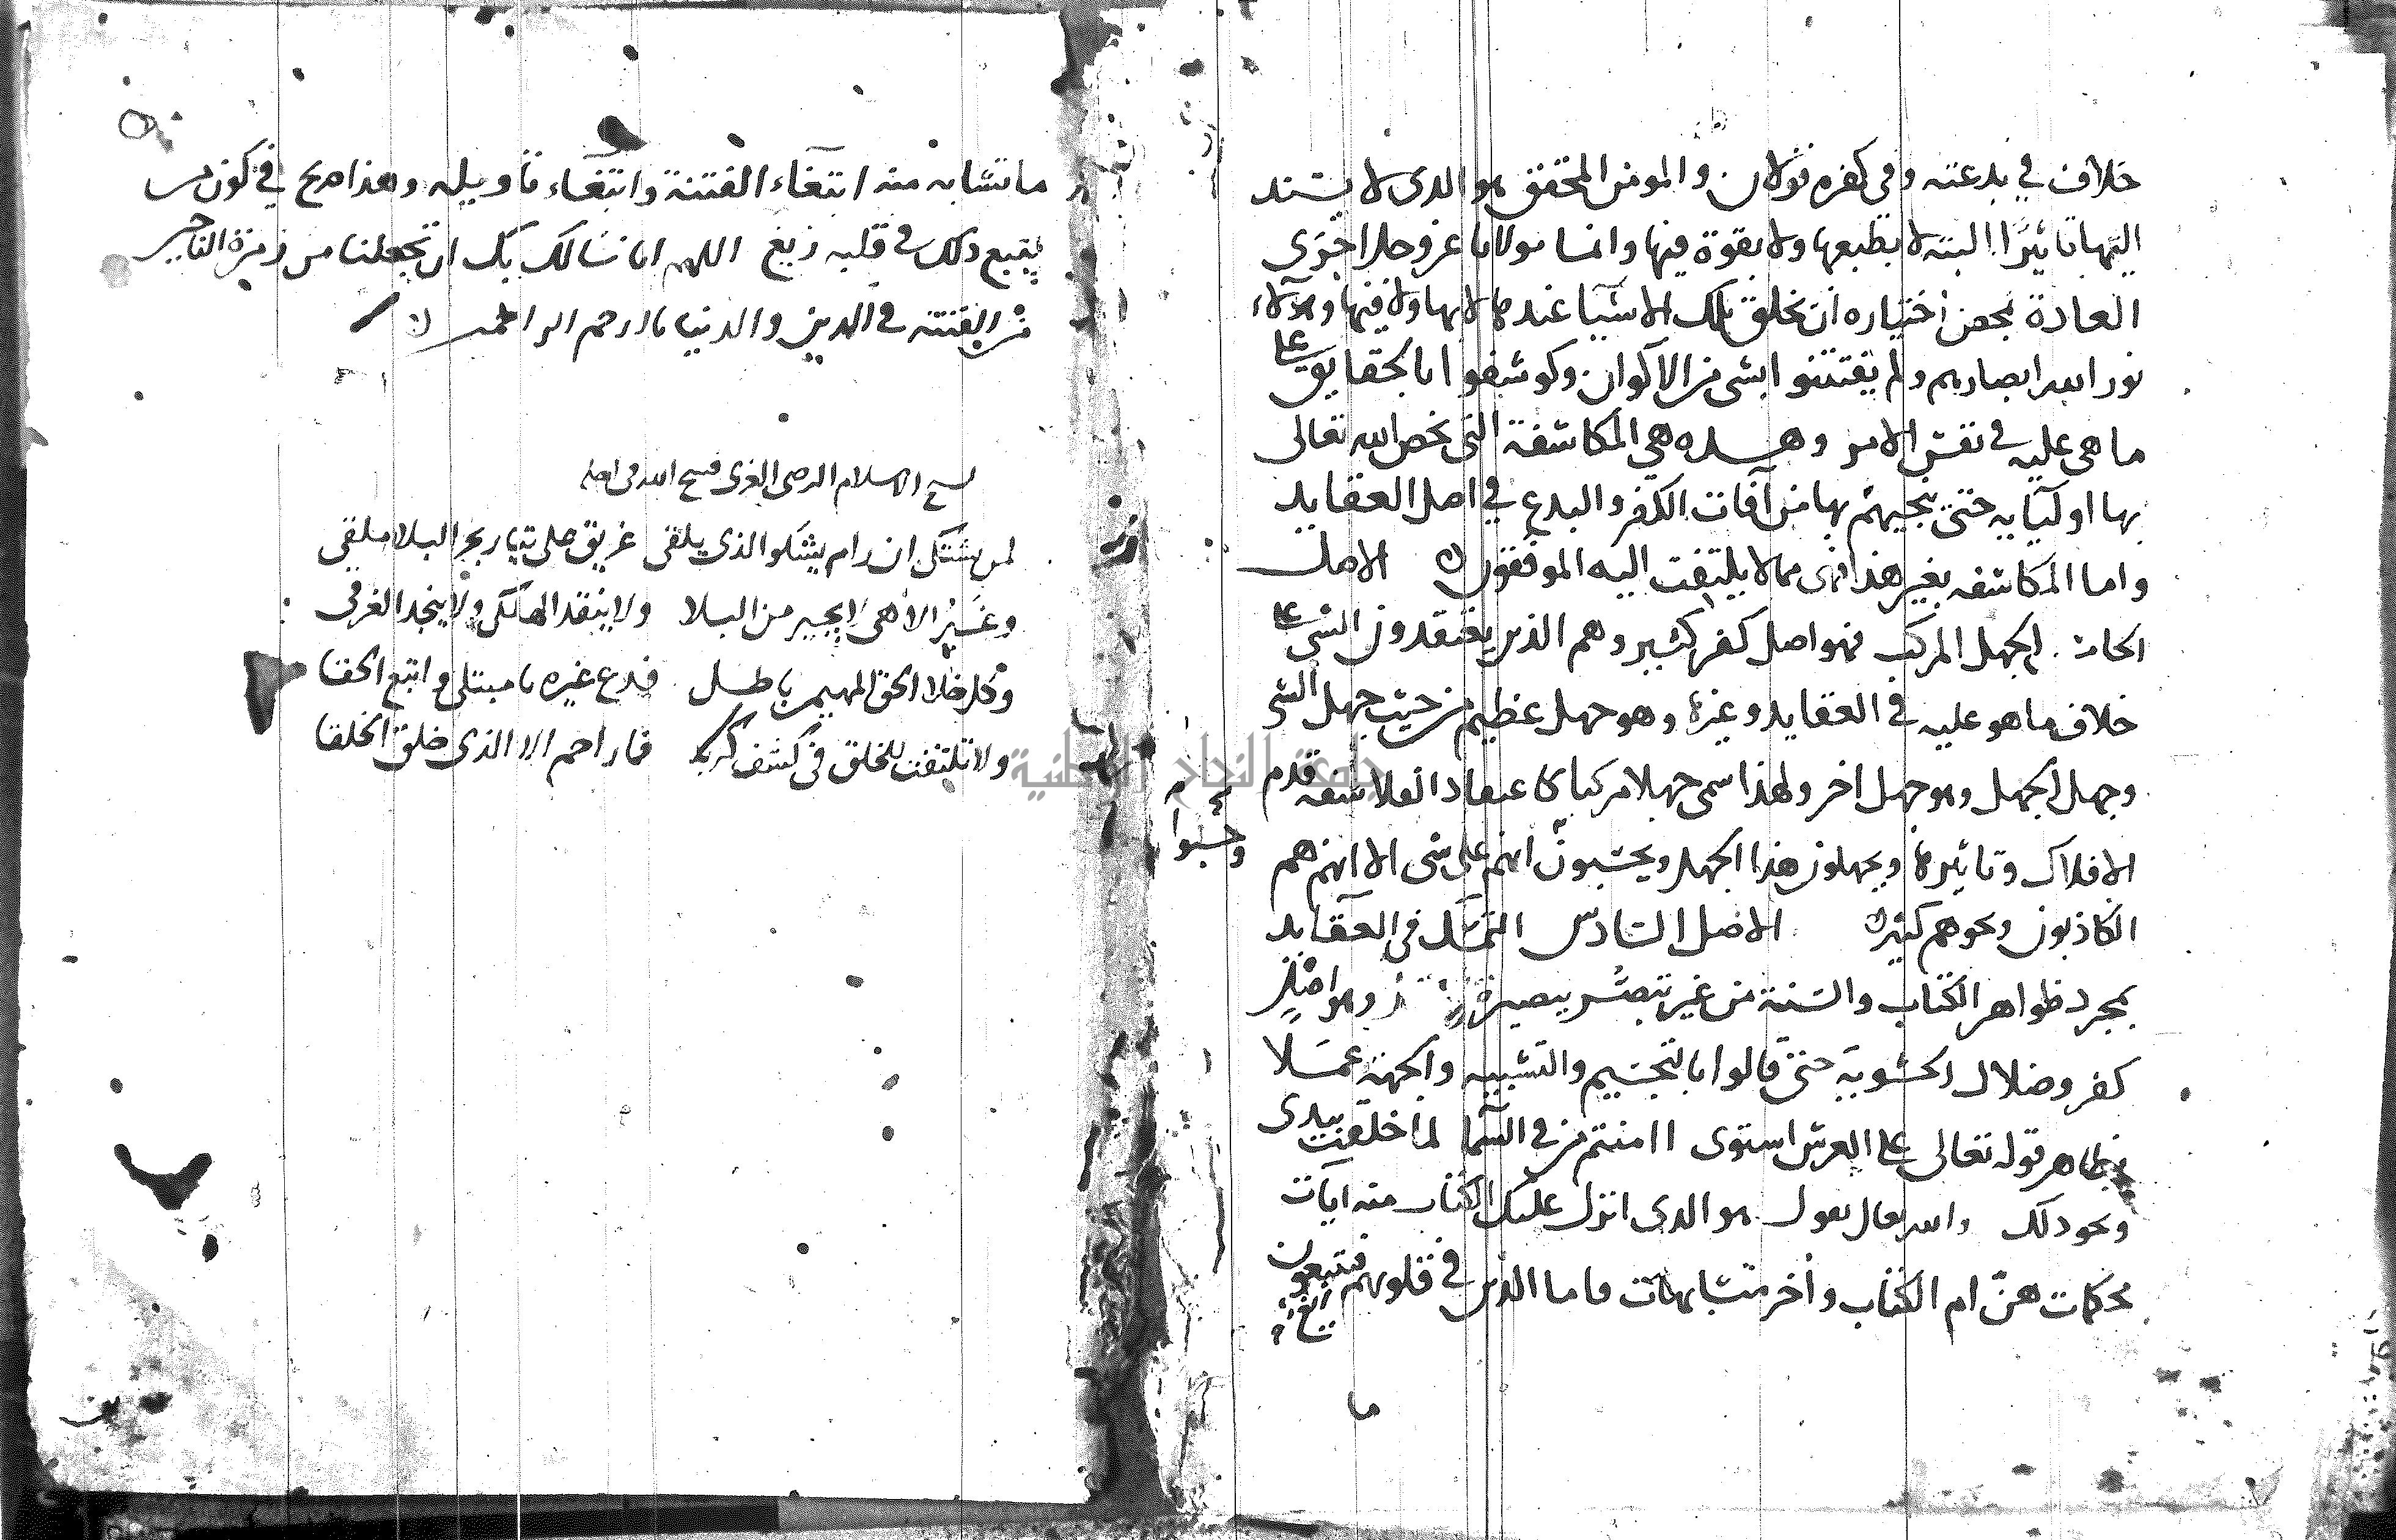 خلاف في بدعته وفي كفره قولان والمومن المحقق هو الدى لا يسند
اليها تاثيرا البته لا بطبعها ولا بقوة فيها وانما مولانا عز وجل اجرى
العادة بمحض اختياره ان يخلق تلك الاشيا عندها لا بها ولا فيها وهولاء
نور الله ابصارهم ولم يفتتنوا بشى من الاكوان وكوشفوا بالحقايق على
ما هى عليه في نفس الامر وهذه هي المكاشفة التى يخص الله تعالى
بها اوليآيه حتى ينجيهم بها من آفات الكفر والبدع في اصل العقايد
واما المكاشفه بغير هذا فهى مما لا يلتفت اليه الموفقون الاصل
الخامس الجهل المركب فهو اصل كفر كثير وهم الذين يعتقدون الشى على
خلاف ما هو عليه في العقايد وغيرها وهو جهل عظيم من حيث جهل الشى
وجهل الجهل وهو جهل اخر ولهذا سمى جهلا مركبا كاعتقاد الفلاسفه قدم
الافلاك وتاثيرها ويجهلون هذا الجهل ويحسبون انهم على شى الا انهم هم
وحسبوا
الكاذبون ونحوهم كثير الاصل السادس التمسك في العقايد
بمجرد ظواهر الكتاب والسنة من غير تبصر ببصيرة وهو اصل
كفر وضلال الحشوية حتى قالوا بالتجسيم والتشبيه والجهة عملا
بظاهر قوله تعالى على العرش استوى اامنتم من في السما لما خلقت بيدى
ونحو دلك والله تعالى يقول هو الدى انزل عليك الكتاب منه ايات
محكمات هن ام الكتاب وأخر متشابهات فاما الذين في قلوبهم زيغ فيتبعون
ما
ما تشابه منه ابتغاء الفتنة وابتغاء تاويله وهذا صريح في كون من
يتبع دلك في قلبه زيغ اللهم انا نسالك بك ان تجعلنا من زمرة الناجين
من الفتنه في الدين والدنيا يا ارحم الراحمين
لشيخ الاسلام الرضى الغزى فسح الله في اجله
لمن يشتكى ان رام يشكو الذى يلقى غريق على تيار بحر البلا ملقى
وغير الاهى لا يجير من البلا ولا ينقد الهلكى ولا ينجد الغرقى
وكل خلا الحق المهيمن باطل فدع غيره يا مبتلى واتبع الحقا
ولا تلتفت للخلق في كشف كربة فما راحم الا الذى خلق الخلقا
جامعة النجاح الوطنية